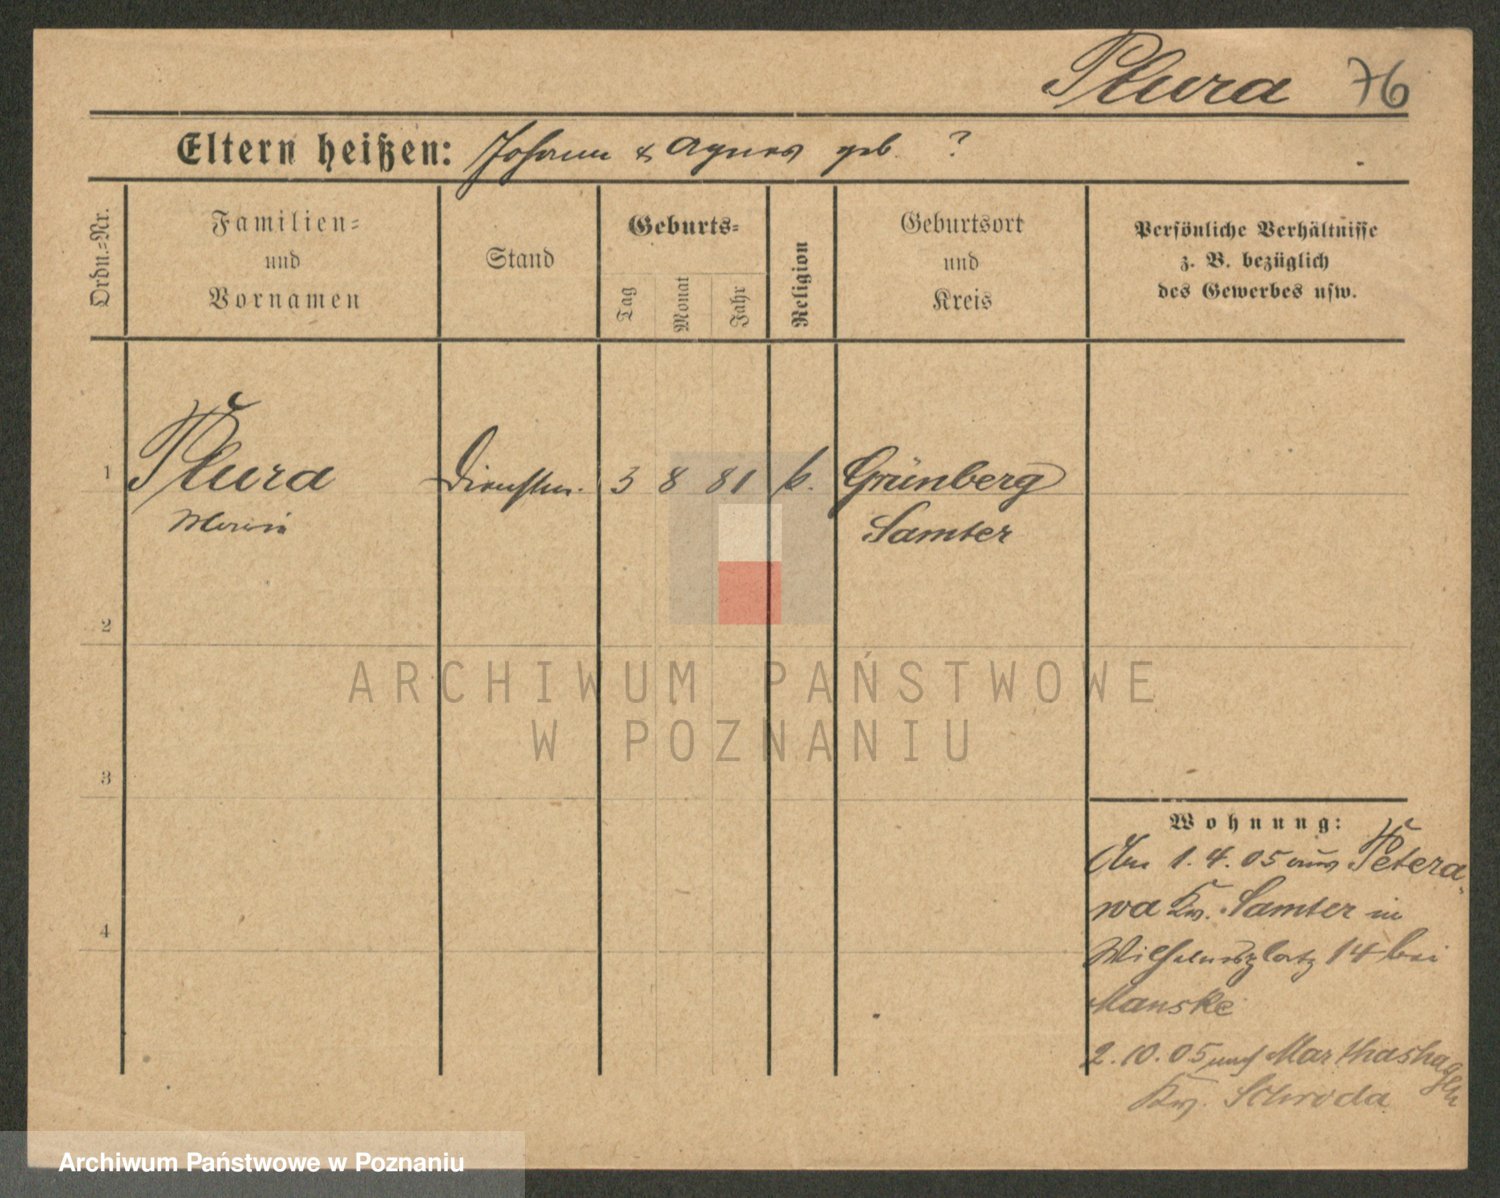 Plura 76
Eltern heißen: Johann & Agnes geb. ?
Ordn.=Nr.
Familien=
und
Vornamen
Stand
Geburts=
Tag
Monat
Jahr
Religion
Geburtsort
und
Kreis
Persönliche Verhältnisse
z. B. bezüglich
des Gewerbes usw.
1 Plura Dienstm. 3 8 81 k. Grünberg
Marie Samter
2
3
4
Wohnung:
Am 1.4.05 aus Petera-
wa Kr. Samter in
Wilhelmsplatz 14 bei
Manske
2.10.05 nach Marthashagen
Kr. Schroda
ARCHIWUM PAŃSTWOWE
W POZNANIU
Archiwum Państwowe w Poznaniu